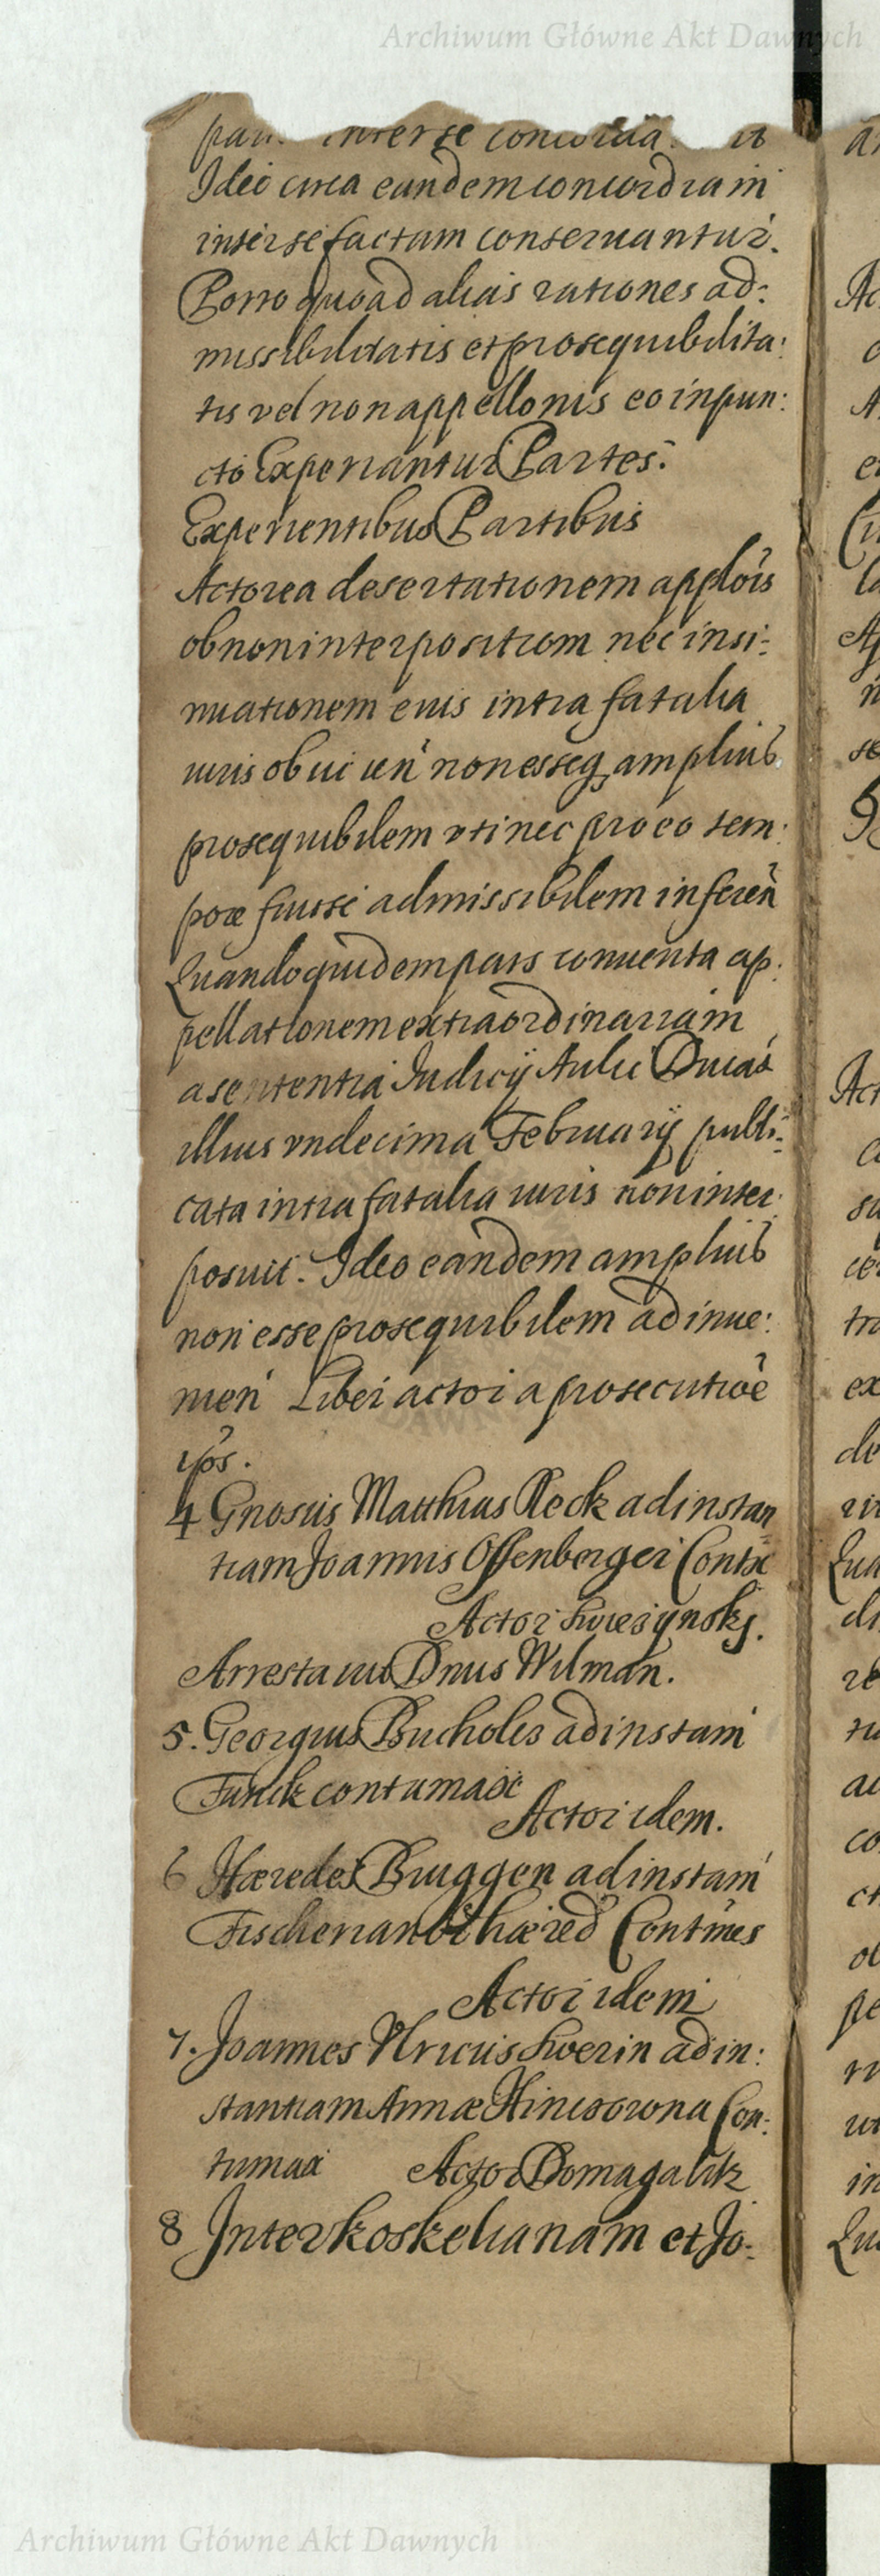 Archiwum Główne Akt Dawnych
inter se concordia
Ideo circa eandem concordiam
inter se factam conseruantur.
Porro quoad alias rationes ad:
missibilitatis et prosequibilita:
tis vel non appellonis eo in pun:
cto Experiantur Partes.
Experientibus Partibus
Actorea desertationem applois
ob non interpositiom nec insi:
nuationem eius intra fatalia
iuris non esseq amplius
prosequibilem vti nec pro eo tem:
pore fuisse admissibilem inferen
Quandoquidem pars conuenta ap:
pellationem extraordinariam
a sententia Iudicij Aulici Ducas
illius vndecima Februarij publi:
cata intra fatalia iuris non inter:
posuit. Ideo eandem amplius
non esse prosequibilem adinue:
men Liber actor a prosecutioe
ips.
4 Gnosus Matthias Reck ad instan
tiam Joannis Offenberger Contx
Actor
Arrestauit Dnus Wilman.
5. Georgius Bucholes ad instam
Funck contumax
Actor idem.
6 Hæredes Bruggen ad instam
hæred Contmes
Actor idem
7. Joannes Vlricus Swerin ad in:
stantiam Annæ Con:
tumax Actor Domagalik
8 Inter koskelianam et Jo:
Archiwum Główne Akt Dawnych